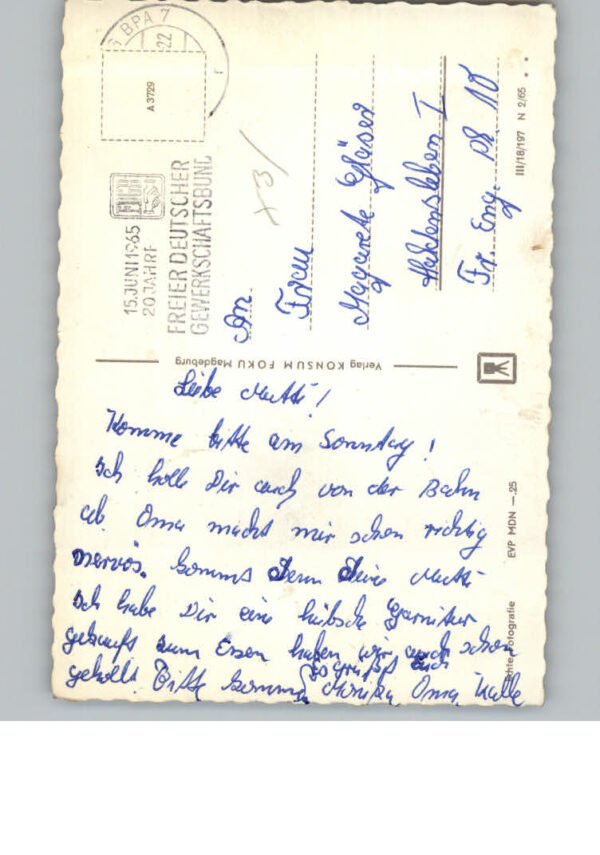 BPA 7
22
A 3729
15. JUNI 1965
20 JAHRE
FREIER DEUTSCHER
GEWERKSCHAFTSBUND
An
Frau
Margarete Gläser
Haldensleben I
Fr. Eng. Pl. 10
III/18/197 N 2/65
Verlag KONSUM FOKU Magdeburg
EVP MDN —.25
Echte Fotografie
Liebe Mutti!
Komme bitte am Sonntag!
Ich holle Dir auch von der Bahn
ab. Oma macht mir schon richtig
nervös. kommt denn deine Mutti
Ich habe Dir eine hübsche Garnitur
gekauft zum Essen haben wir auch schon
geholt. Bitte komm
Es grüßt Euch
Oma, Kalle